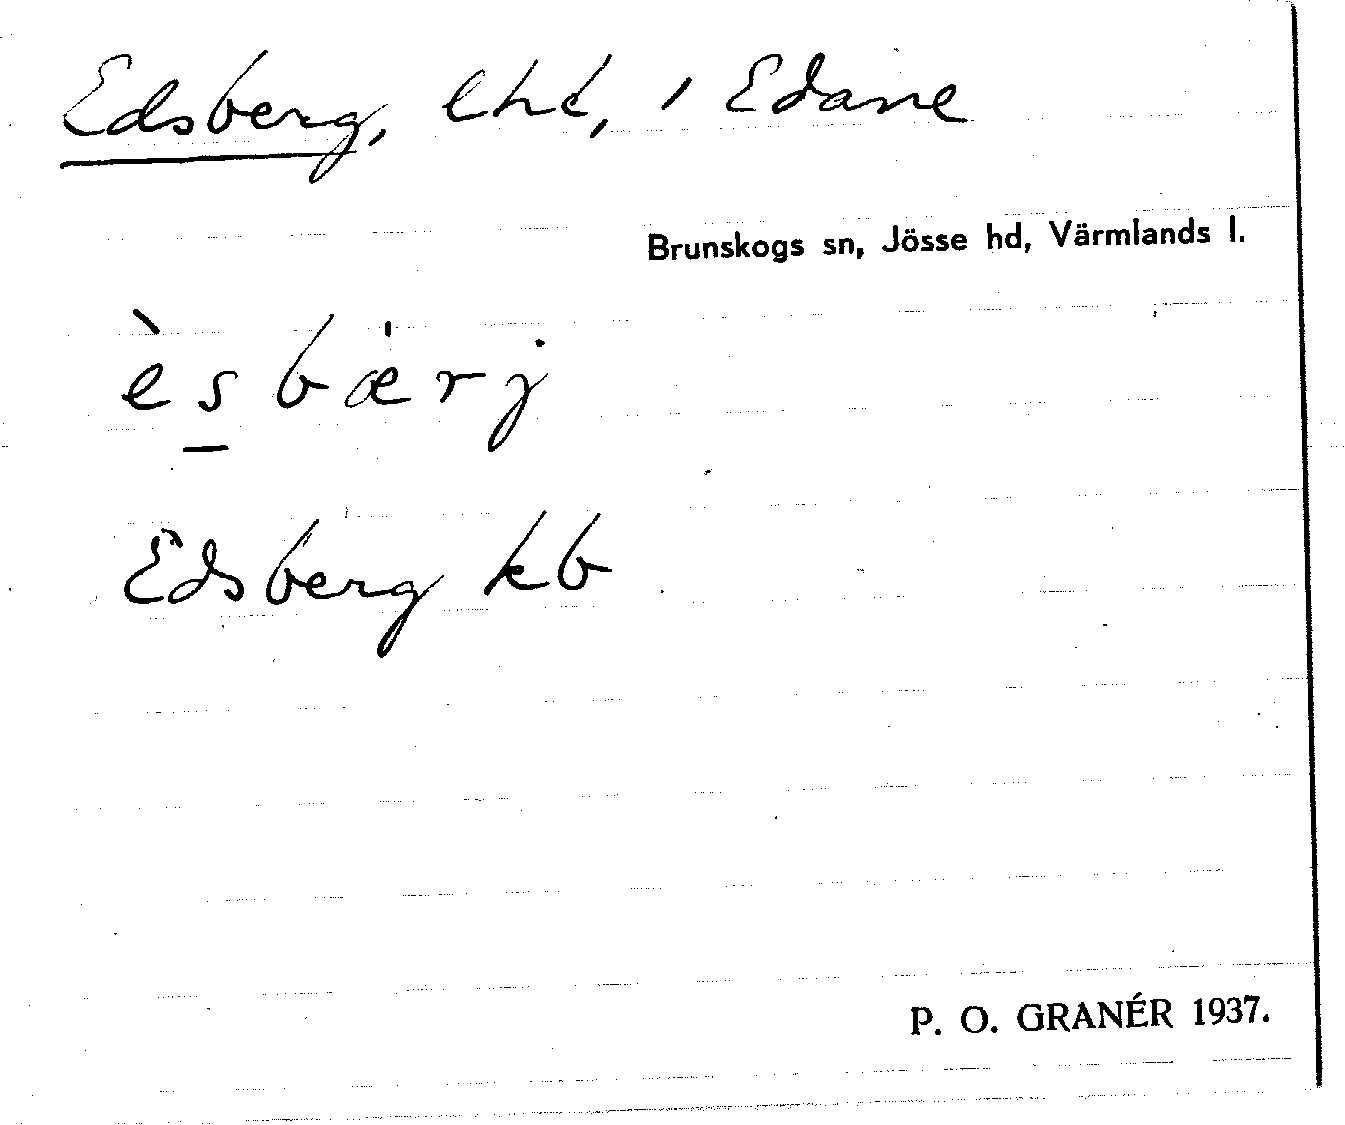 Edsberg, lht, i Edane
Brunskogs sn, Jösse hd, Värmlands l.
èsbærj
Edsberg kb
P. O. GRANÉR 1937.